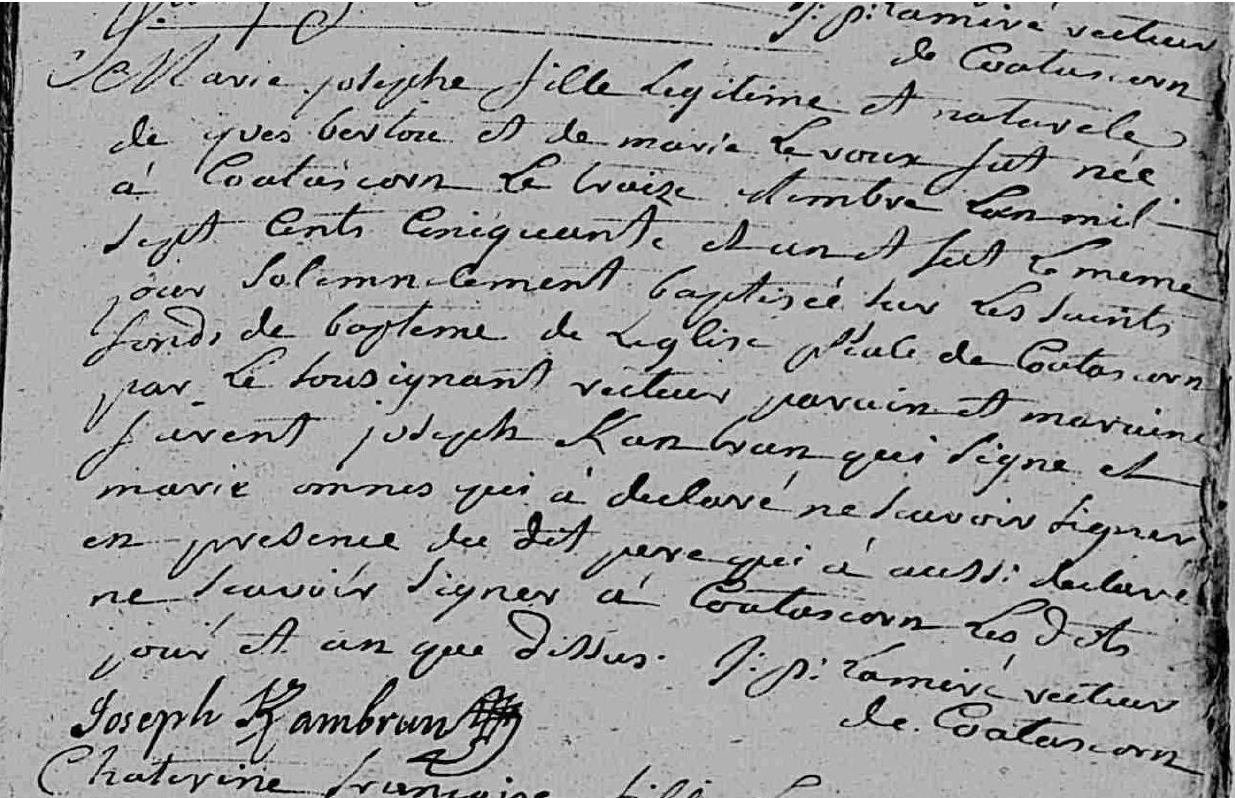 J: P: Lamiré recteur
de Coatascorn
Marie josephe fille Legitime et naturele
de yves bertou et de marie Le roux fut née
à Coatascorn Le traize Xembre Lan mil
sept Cents Cincquante et un et fut Le meme
jour Solemnelement baptisée sur Les saints
fonds de bapteme de Leglise p̃ialle de Coatascorn
par Le sousignant recteur parain et maraine
furent joseph Kambrun qui signe et
marie omnes qui à declaré ne scavoir signer
en presence du dit pere qui à aussi declaré
ne scavoir signer à Coatascorn Les dits
jour et an que dessus. J: P: Lamiré recteur
de Coatascorn
Joseph Kambrun
Chaterine françoise fille